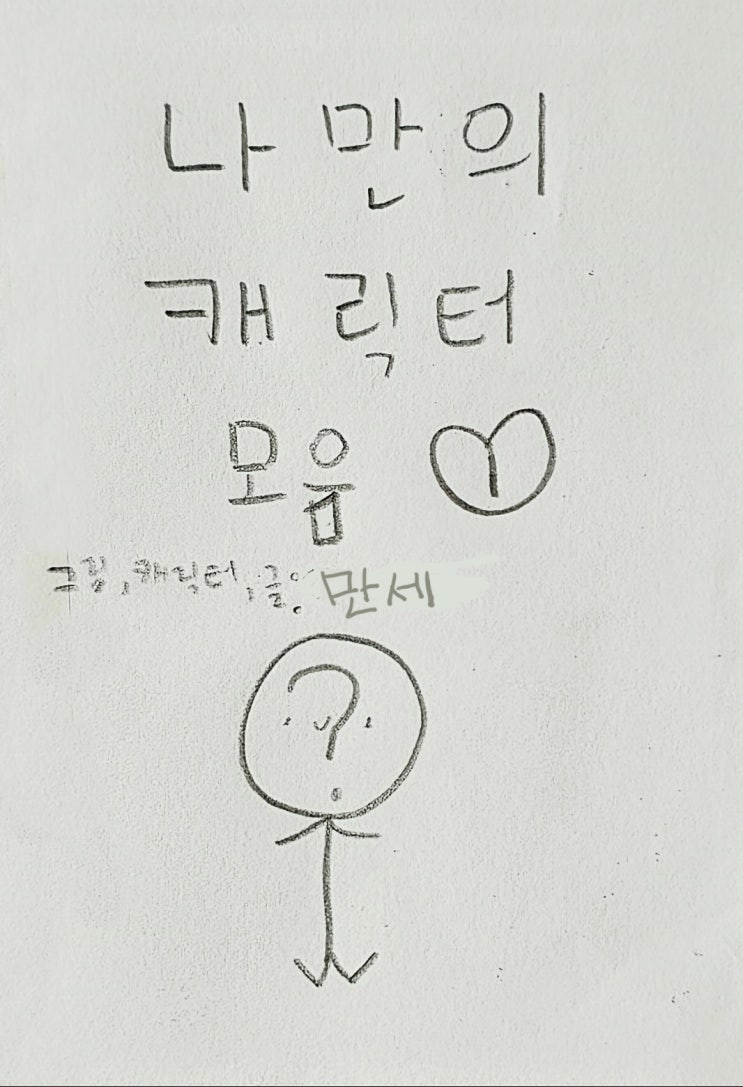 나만의
캐릭터
모음
그림,캐릭터,글: 만세
?